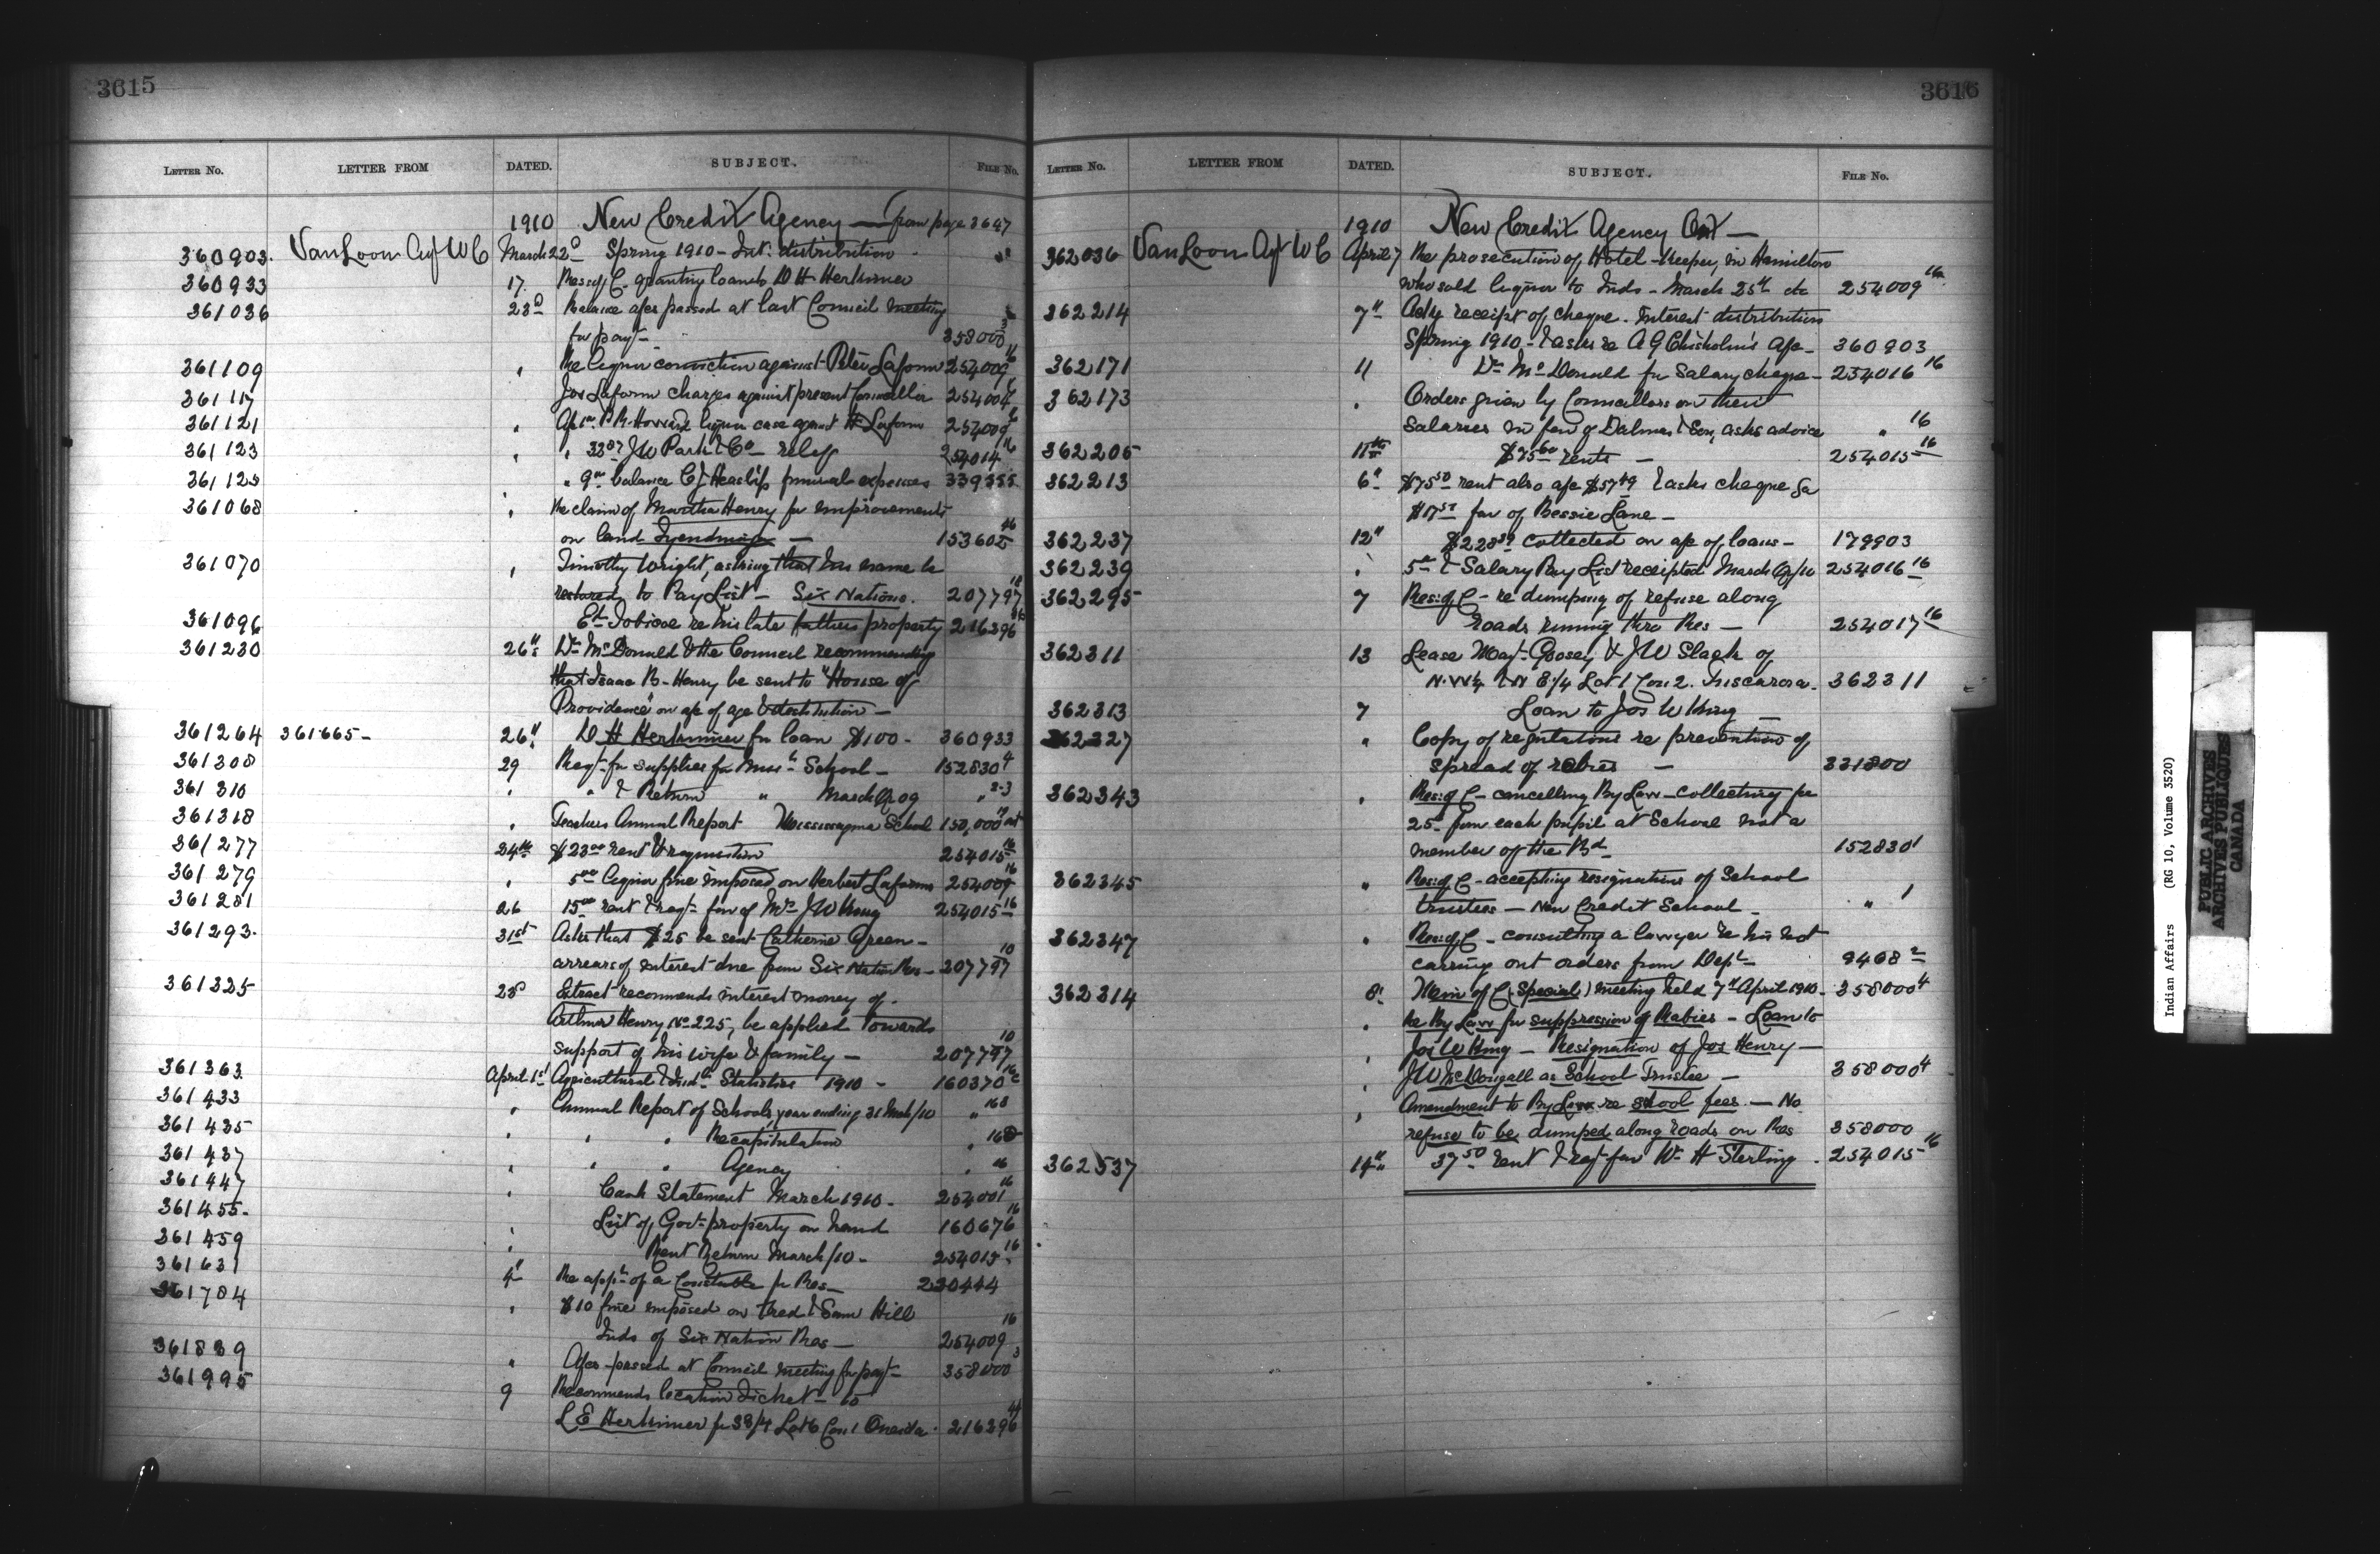 3615
LETTER No. LETTER FROM DATED. SUBJECT. FILE No.
1910 New Credit Agency — from page 3647
360903. VanLoon Agt W C March 22d Spring 1910 - Int: distribution
360933 17. Res: of C. granting loan to D H Herkimer
361036 23d Balance a/cs passed at last Council meeting
for payt - 358000 3
361109 " Re liquor conviction against Peter Laform 254009 16
361117 Jos Laform charges against present Councillor 254004
361121 " P. R. Howard liquor case against H Laform 254009 16
361123 " " J W Park & Co - relief 254014 16
361125 " 9 balance C J Heaslip funeral expenses 339355
361068 " Re claim of Martha Henry for improvements
on land Tyendinaga — 153602 46
361070 " Timothy Wright, asking that his name be
restored to Pay List - Six Nations. 207797 10
361096 Eth Tobicoe re his late fathers property 216296
361230 26": Dr McDonald & the Council recommending
that Isaac B- Henry be sent to "House of
Providence" on a/c of age & destitution -
361264 361665- 26" D H Herkimer for loan $100 - 360933
361308 29 Reqt for supplies for School - 152830 4
361310 " " & Return " March Qr 09 " 2-3
361318 " Teachers Annual Report Mississagua School 150,000
361277 24th $23 00 rent & requisition 254015 16
361279 " 5 00 liquor fine imposed on Herbert Laforme 254009 16
361281 26 15 00 rent & reqt fav of Mrs J W King 254015 16
361293. 31st Asks that $25 be sent Catherine Green -
arrears of interest due from Six Nation Res - 207797 10
361325 28 Extract recommends interest money of
Arthur Henry No 225, be applied towards
support of his wife & family — 207797 10
361363 April 1st Agricultural & Indl Statistics 1910 - 160370
361433 " Annual Report of Schools year ending 31 Mch/10 " 168
361435 " " " Recapitulation " 168
361437 " " " Agency " 16
361447 " Cash Statement March 1910 - 254001 16
361455- List of Govt property on hand 160676 16
361459 " Rent Return March/10 - 254015 16
361631 4" Re appt of a Constable for Res - 230444
361784 " $10 fine imposed on Fred & Sam Hill
Inds of Six Nation Res - 254009 16
361839 " A/cs passed at Council meeting for payt - 358000 3
361995 9 Recommends location ticket - to
L E Herkimer for S 3/4 Lot 6 Con 1 Oneida. 216296
3616
LETTER No. LETTER FROM DATED. SUBJECT. FILE No.
1910 New Credit Agency Ont —
362036 VanLoon Agt W C April 7 Re prosecution of Hotel-Keeper, in Hamilton
who sold liquor to Inds - March 25th etc 254009 16
362214 7" Ackg receipt of cheque. Interest distribution
Spring 1910 - & asks re A G Chisholm's a/c - 360903
362171 11 Dr McDonald for salary cheque - 254016 16
362173 " Orders given by Councillors on their
salaries in fav of Dalmas & Son, asks advice " 16
362205 11th $75 60 rents — 254015 16
362213 6" $75 50 rent also a/c $57 49 & asks cheque for
$17 51 fav of Bessie Lane -
362237 12" collected on a/c of loans - 179903
362239 " & Salary Pay List receipted March Qr/10 254016 16
362295 7 Res: of C - re dumping of refuse along
roads running thro Res - 254017 16
362311 13 Lease Goosey & J W Slack of
N.W 1/4 & N E 1/4 Lot 1 Con 2. Tuscarora. 362311
362313 7 Loan to Jos W King —
362327 " Copy of regulations re prevention of
spread of rabies — 331800
362343 " Res: of C - cancelling By Law - collecting for
25 from each pupil at School not a
member of the Bd 152830 1
362345 " Res: of C - accepting resignations of School
trustees - New Credit School - " 1
362347 " Res: of C - consulting a lawyer re his not
carring out orders from Dept - 9408 2
362314 8" Min of C (Special) meeting held 7" April 1910 - 358000 4
" Re By Law for suppression of Rabies - Loan to
" Jos W King - Resignation of Jos Henry -
" J W McDougall as School Trustee - 358000 4
" Amendment to By Law re school fees. — No
refuse to be dumped along roads on Res 358000
362537 14" 37 50 rent & reqt fav Wm H Sterling. 254015 16
Indian Affairs (RG 10, Volume 3520)
PUBLIC ARCHIVES
ARCHIVES PUBLIQUES
CANADA